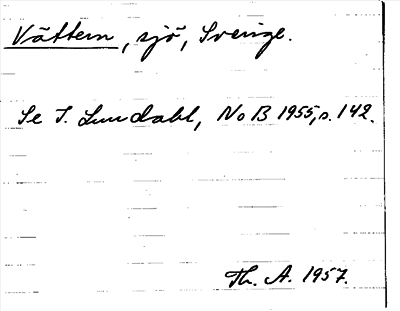 Vättern, sjö, Sverige.
Se I. Lundahl, NoB 1955, s. 142.
Th. A. 1957.